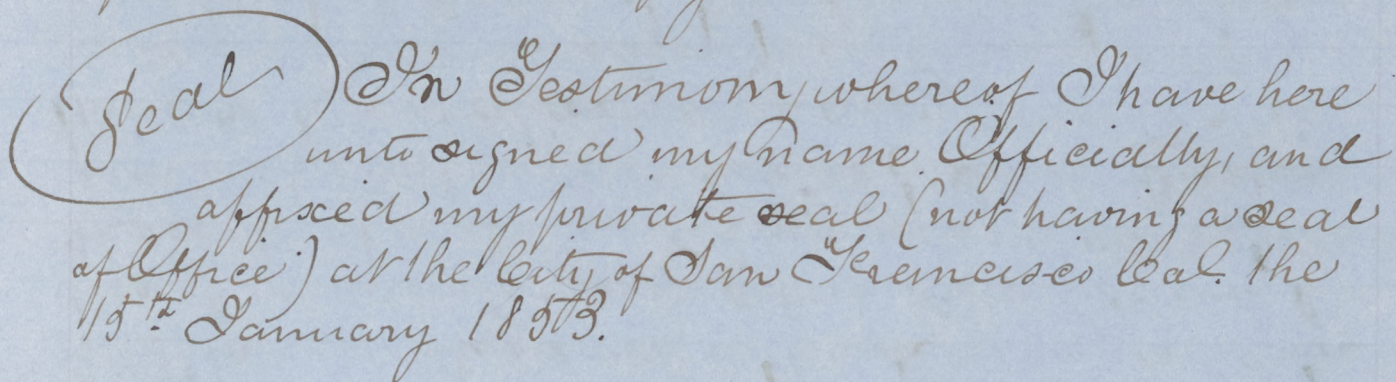 Seal
In Testimony whereof I have here
unto signed my name Officially, and
affixed my private seal (not having a seal
of Office) at the City of San Francisco Cal. the
15th January 1853.